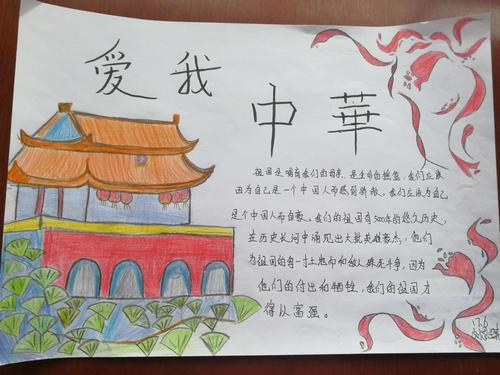 爱我
中華
祖国是哺育我们的母亲,是生命的摇篮,我们应该
因为自己是一个中国人而感到骄傲。我们应该为自己
是个中国人而自豪。我们的祖国有5000年的悠久历史,
在历史长河中涌现出大批英雄豪杰,他们
为祖国的每一寸土地而和敌人殊死斗争,因为
他们的付出和牺牲,我们的祖国才
得以富强。